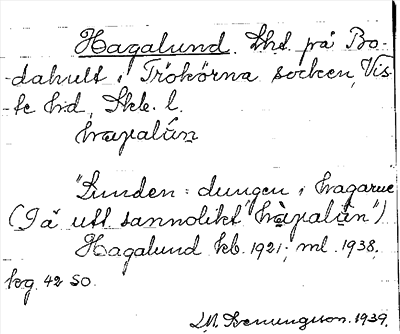 Hagalund. Lhd. på Bo-
-dahult i Trökörna socken, Vis-
-te hd, Skb. l.
hagalún
"Lunden: dungen i hagarne
(I ä utt sannolikt "hàgalún")
Hagalund kb. 1921; ml. 1938.
kg. 42 SO.
1939.